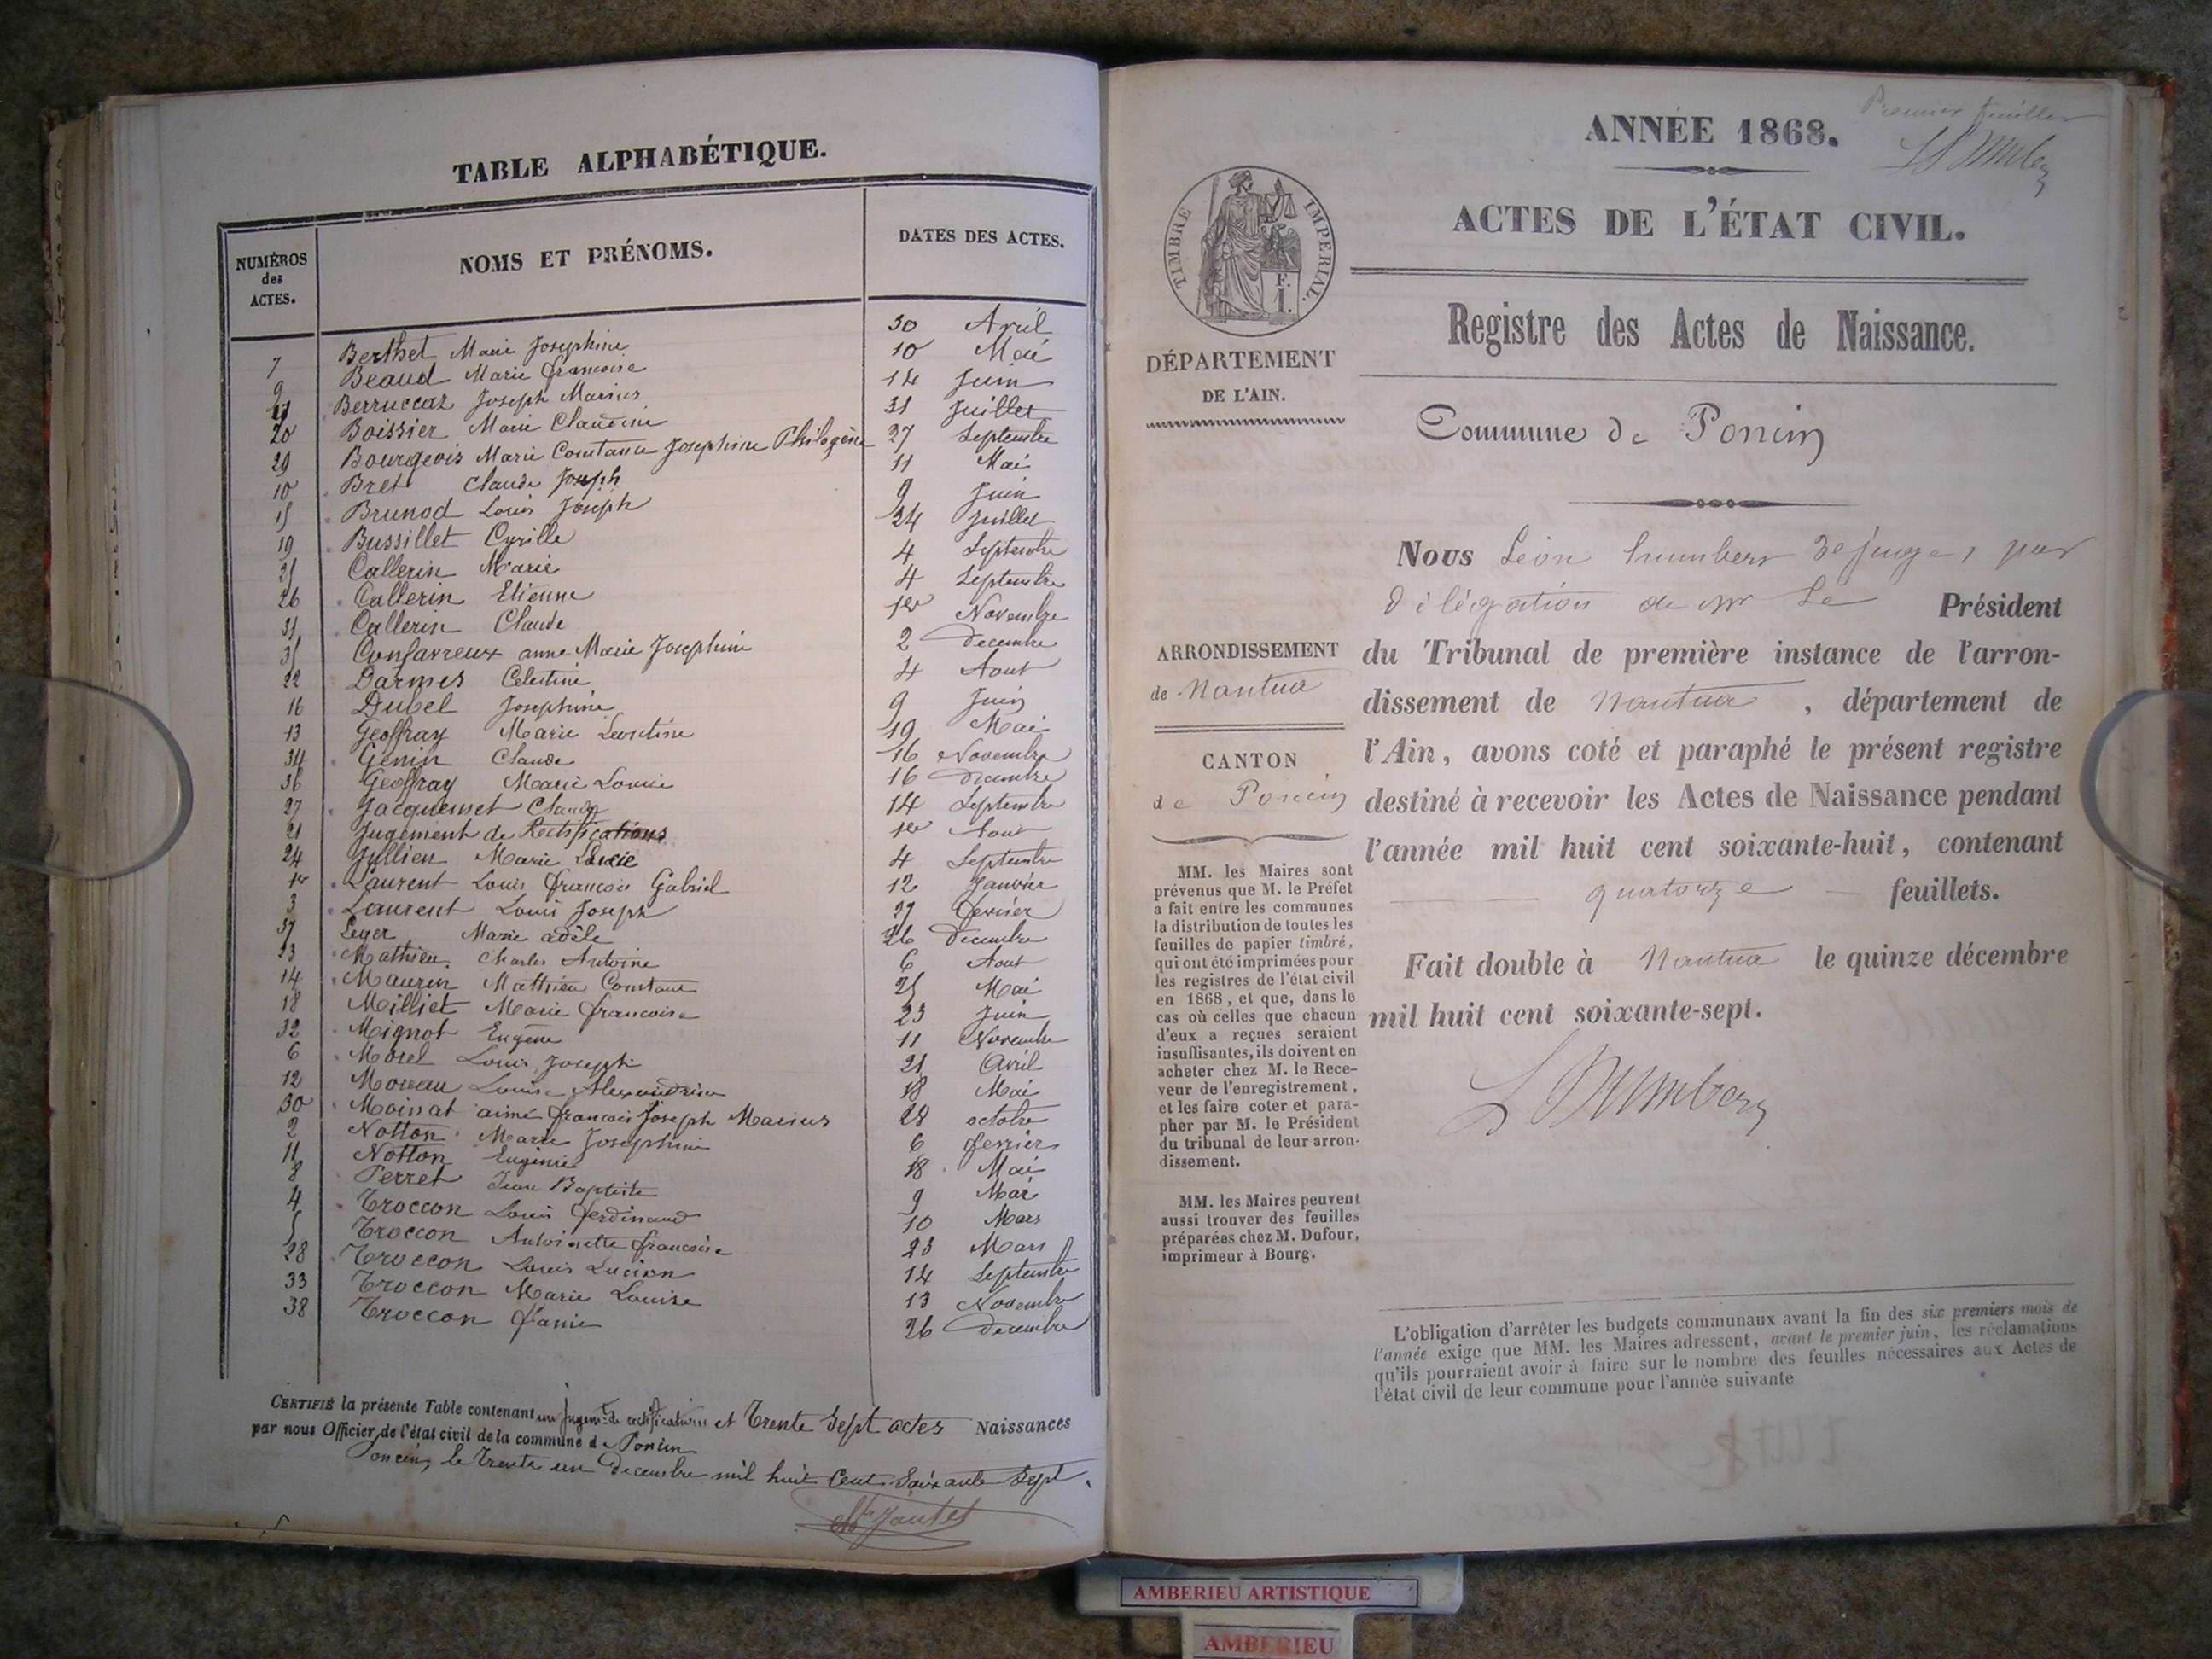 TABLE ALPHABÉTIQUE.
NUMÉROS des ACTES.
NOMS ET PRÉNOMS.
DATES DES ACTES.
7 Berthet Marie Josephine 30 Avril
9 Beaud Marie francoise 10 Mai
17 Berruccaz Joseph Marius 14 Juin
20 Boissier Marie Claudine 31 Juillet
29 Bourgeois Marie Constance Josephine Philogène 27 Septembre
10 Bret Claude Joseph 11 Mai
15 Brunod Louis Joseph 9 Juin
19 Bussillet Cyrille 24 Juillet
25 Callerin Marie 4 Septembre
26 Callerin Etienne 4 Septembre
31 Callerin Claude 1er Novembre
35 Confavreux anne Marie Josephine 2 Decembre
22 Darmes Celestine 4 Aout
16 Dubel Josephine 9 Juin
13 Geoffray Marie Leontine 19 Mai
34 Genin Claude 16 Novembre
36 Geoffray Marie Louise 16 Decembre
27 Jacquemet Claude 14 Septembre
21 Jugement de Rectifications 1er Aout
24 Jullien Marie Lucie 4 Septembre
1er Laurent Louis francois Gabriel 12 Janvier
3 Laurent Louis Joseph 27 fevrier
37 Leger Marie adèle 26 Decembre
23 Mathieu Charles Antoine 6 Aout
14 Mauren Mathieu Constant 25 Mai
18 Milliet Marie francoise 23 Juin
32 Mignot Eugène 11 Novembre
6 Morel Louis Joseph 21 Avril
12 Moreau Louise Alexandrine 18 Mai
30 Moinat aimé francois Joseph Marius 28 octobre
2 Notton Marie Josephine 6 fevrier
11 Notton Eugènie 18 Mai
8 Perret Jean Baptiste 9 Mai
4 Troccon Louis ferdinand 10 Mars
5 Troccon Antoinette francoise 23 Mars
28 Troccon Louis Lucien 14 Septembre
33 Troccon Marie Louise 13 Novembre
38 Troccon fanie 26 Decembre
CERTIFIÉ la présente Table contenant un jugemt de rectification et Trente Sept actes Naissances
par nous Officier de l'état civil de la commune de Poncin
Poncin, le Trente un Decembre mil huit Cent Soixante Sept.
Premier feuillet
ANNÉE 1868.
ACTES DE L'ÉTAT CIVIL.
TIMBRE IMPERIAL.
F.
1.
Registre des Actes de Naissance.
DÉPARTEMENT
DE L'AIN.
Commune de Poncin
Nous Léon humbert De juge, par
délégation de mr Le Président
du Tribunal de première instance de l'arron-
dissement de Nantua, département de
l'Ain, avons coté et paraphé le présent registre
destiné à recevoir les Actes de Naissance pendant
l'année mil huit cent soixante-huit, contenant
quatorze feuillets.
Fait double à Nantua le quinze décembre
mil huit cent soixante-sept.
L Humbert
ARRONDISSEMENT
de Nantua
CANTON
de Poncin
MM. les Maires sont
prévenus que M. le Préfet
a fait entre les communes
la distribution de toutes les
feuilles de papier timbré,
qui ont été imprimées pour
les registres de l'état civil
en 1868, et que, dans le
cas où celles que chacun
d'eux a reçues seraient
insuffisantes, ils doivent en
acheter chez M. le Rece-
veur de l'enregistrement,
et les faire coter et para-
pher par M. le Président
du tribunal de leur arron-
dissement.
MM. les Maires peuvent
aussi trouver des feuilles
préparées chez M. Dufour,
imprimeur à Bourg.
L'obligation d'arrêter les budgets communaux avant la fin des six premiers mois de
l'année exige que MM. les Maires adressent, avant le premier juin, les réclamations
qu'ils pourraient avoir à faire sur le nombre des feuilles nécessaires aux Actes de
l'état civil de leur commune pour l'année suivante
AMBERIEU ARTISTIQUE
AMBERIEU